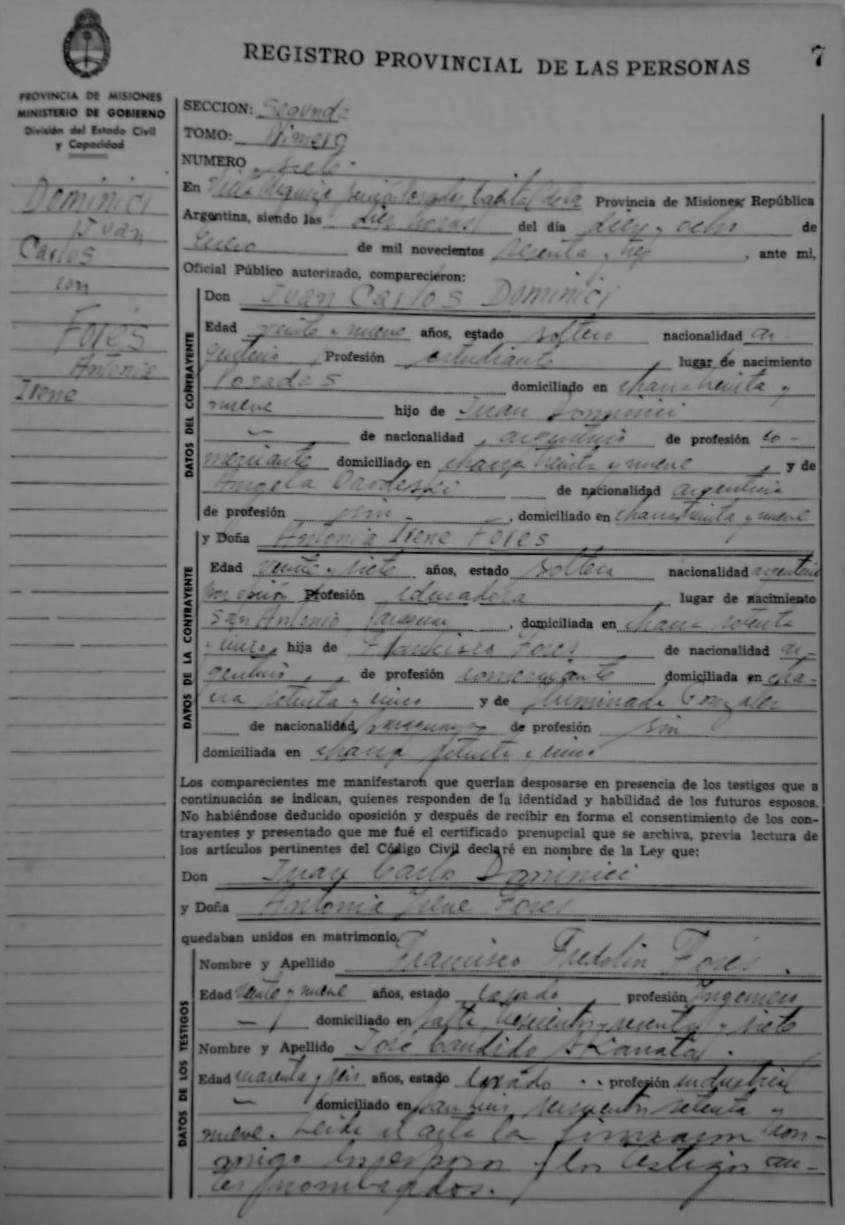 REGISTRO PROVINCIAL DE LAS PERSONAS
7
PROVINCIA DE MISIONES
MINISTERIO DE GOBIERNO
División del Estado Civil
y Capacidad
Dominici
Juan
Carlos
con
Forés
Antonia
Irene
SECCION: Segunda
TOMO: Primero
NUMERO siete
En Provincia de Misiones, República
Argentina, siendo las diez horas del día diez y ocho de
de mil novecientos sesenta y tres, ante mi,
Oficial Público autorizado, comparecieron:
DATOS DEL CONTRAYENTE
Don Juan Carlos Dominici
Edad veinte y nueve años, estado soltero nacionalidad ar-
gentino Profesión estudiante, lugar de nacimiento
Posadas domiciliado en chacra treinta y
nueve hijo de Juan Dominici
de nacionalidad argentino de profesión co-
merciante domiciliado en chacra treinta y nueve, y de
Angela de nacionalidad argentina
de profesión sin, domiciliado en chacra treinta y nueve
y Doña Antonia Irene Fores
DATOS DE LA CONTRAYENTE
Edad veinte y siete años, estado soltera nacionalidad argentina
por opción Profesión lugar de nacimiento
San Antonio, Paraguay, domiciliada en chacra setenta
y cinco, hija de Francisco Fores de nacionalidad ar-
gentino, de profesión comerciante domiciliada en cha-
cra setenta y cinco y de Iluminada Gonzalez
de nacionalidad paraguaya de profesión sin
domiciliada en chacra setenta y cinco
Los comparecientes me manifestaron que querían desposarse en presencia de los testigos que a
continuación se indican, quienes responden de la identidad y habilidad de los futuros esposos.
No habiéndose deducido oposición y después de recibir en forma el consentimiento de los con-
trayentes y presentado que me fué el certificado prenupcial que se archiva, previa lectura de
los artículos pertinentes del Código Civil declaré en nombre de la Ley que:
Don Juan Carlos Dominici
y Doña Antonia Irene Fores
quedaban unidos en matrimonio.
DATOS DE LOS TESTIGOS
Nombre y Apellido Francisco Fredolin Forés.
Edad veinte y nueve años, estado casado, profesión Ingeniero
domiciliado en Salta trescientos sesenta y siete
Nombre y Apellido José Candido
Edad cuarenta y seis años, estado casado profesión industrial
domiciliado en San Luis setenta y
nueve. Leida el acta la firmaron con-
migo los esposos y los testigos an-
tes nombrados.